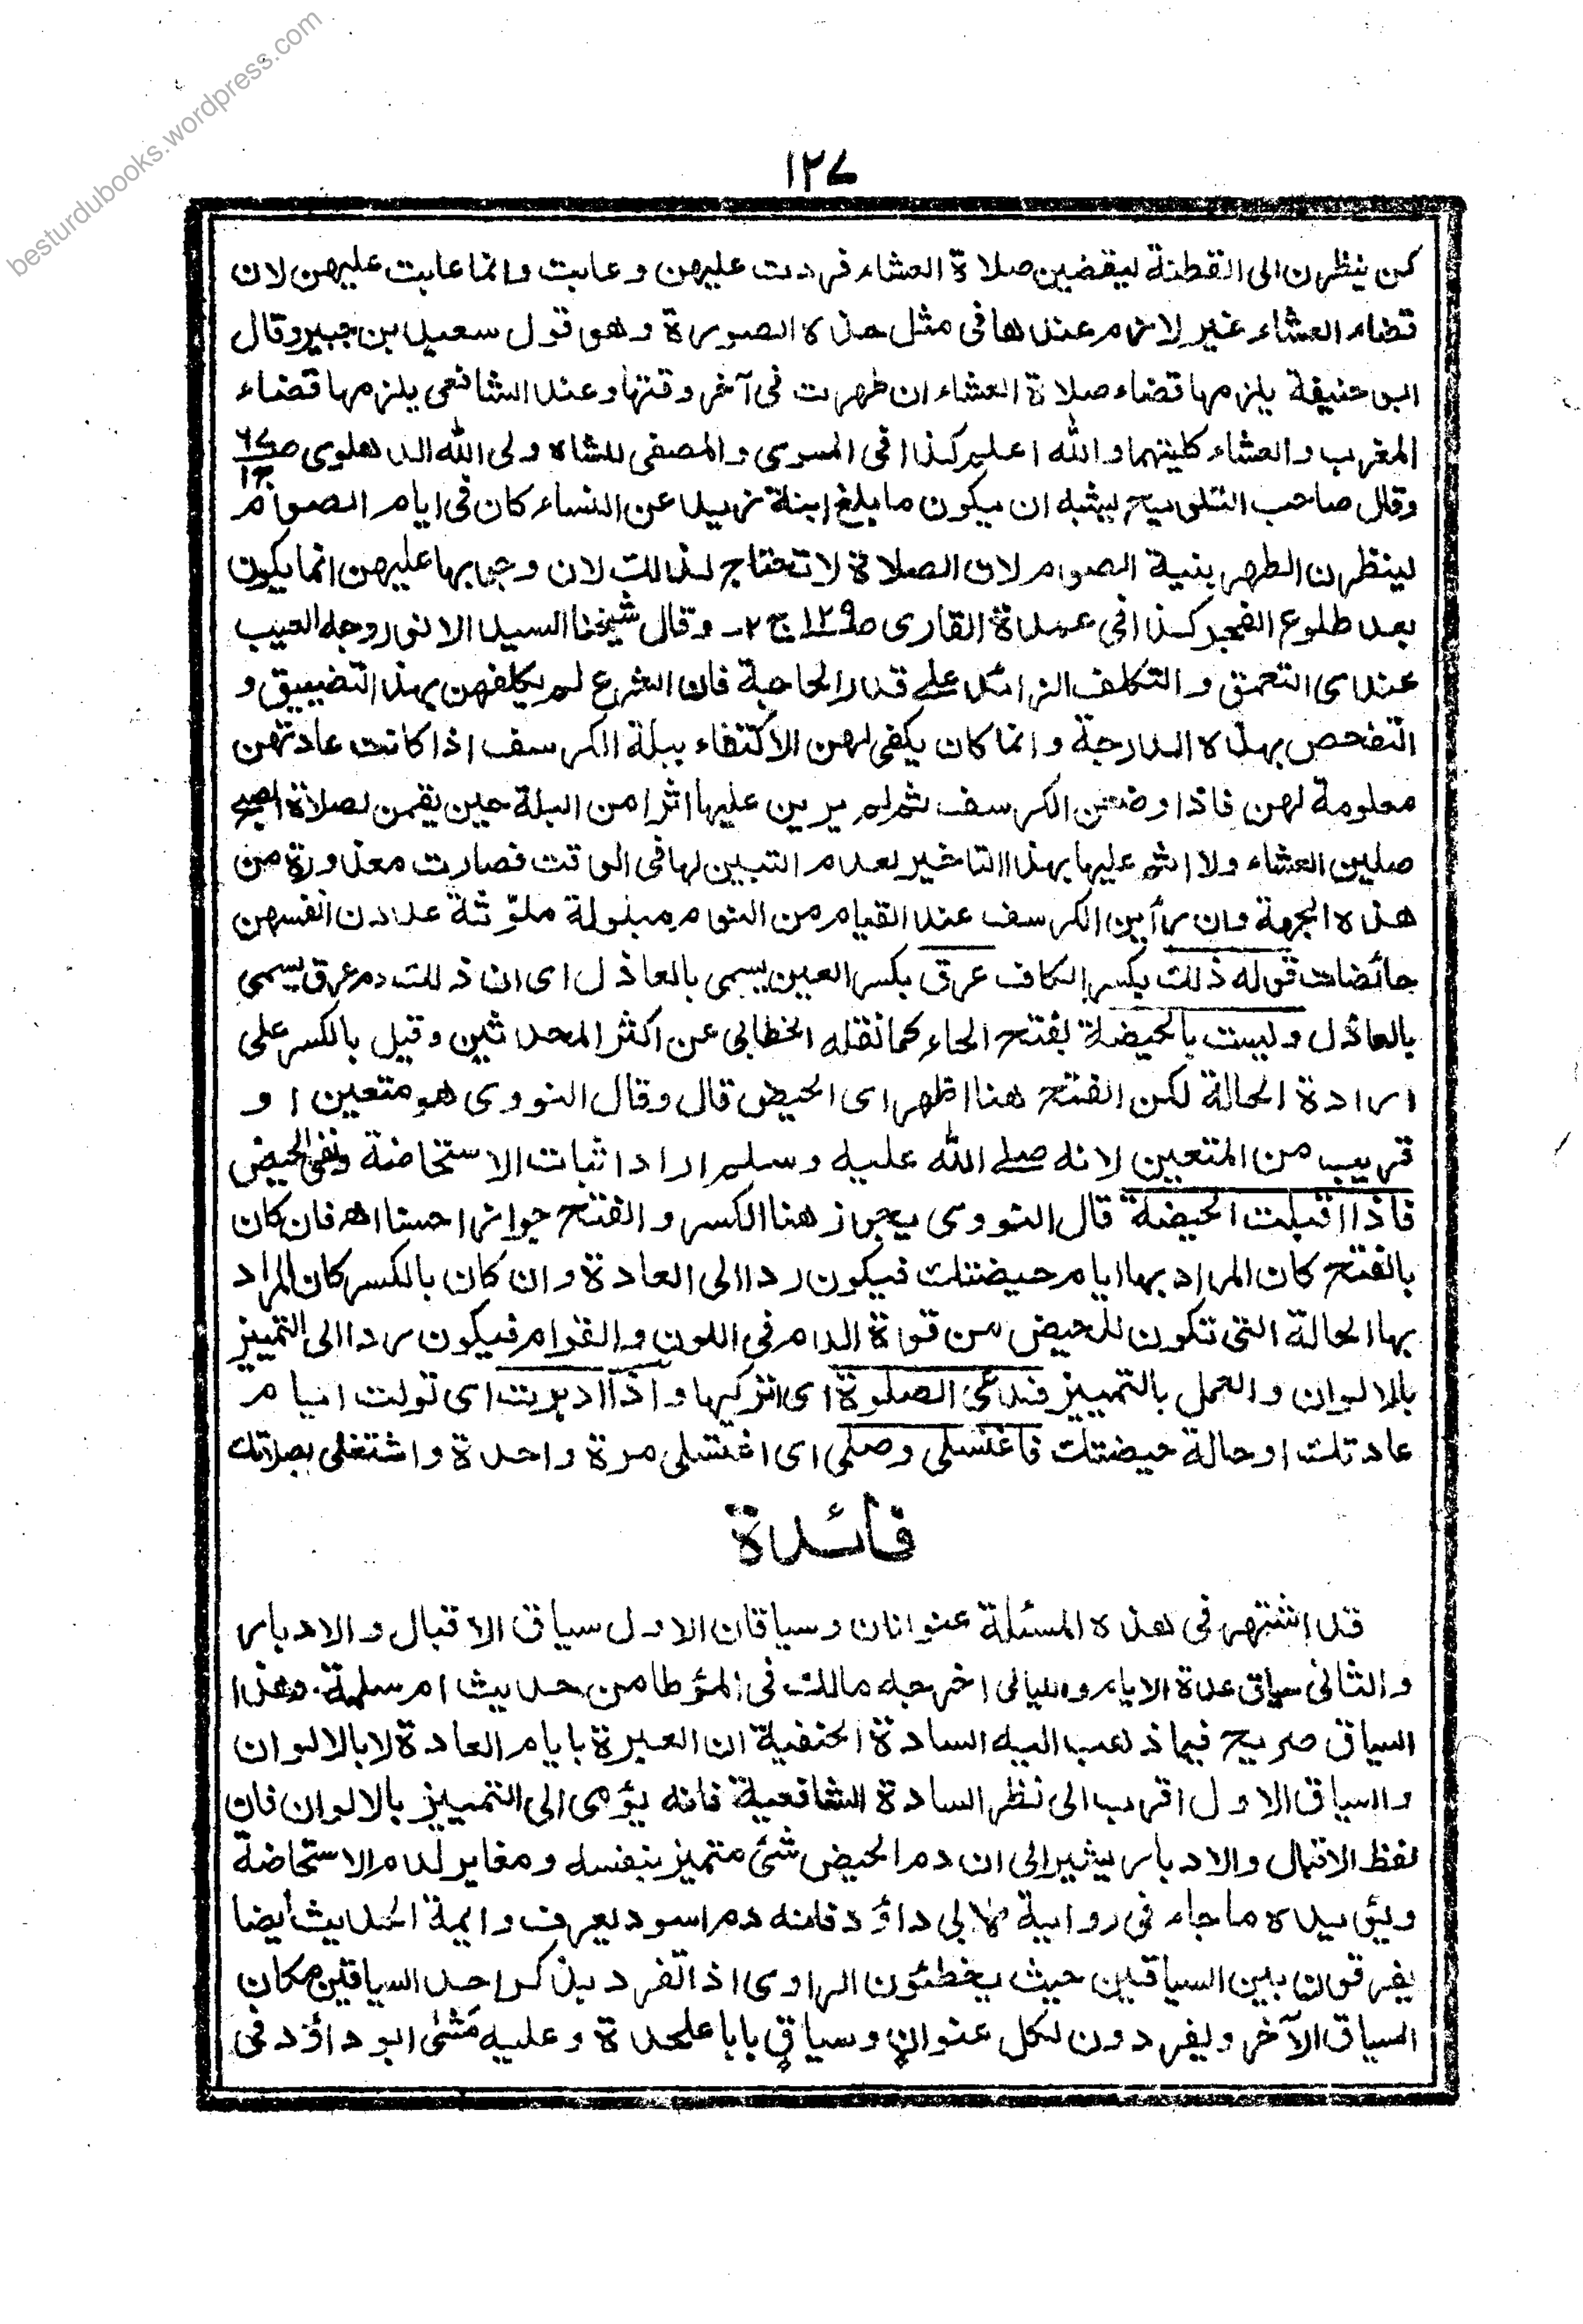 besturdubooks.wordpress.com
١٢٧
كن ينظرن الى القطنة ليقضين صلاة العشاء فردت عليهن وعابت وانما عابت عليهن لان
قضاء العشاء غير لازم عندها فى مثل هذه الصورة وهو قول سعيد بن جبير وقال
ابو حنيفة يلزمها قضاء صلاة العشاء ان طهرت فى آخر وقتها وعند الشافعى يلزمها قضاء
المغرب والعشاء كليتهما والله اعلم كذا فى المسوى والمصفى للشاه ولى الله الدهلوى ص٦٧ ج١
وقال صاحب التلويح يشبه ان يكون ما بلغ ابنة زيد عن النساء كان فى ايام الصوام
لينظرن الطهر بنية الصوام لان الصلاة لا تحتاج لذالك لان وجوبها عليهن انما يكون
بعد طلوع الفجر كذا فى عمدة القارى ص١٢٩ ج ٢ـ وقال شيخنا السيد الانور وجه العيب
عندى التعمق والتكلف الزائد على قدر الحاجة فان الشرع لم يكلفهن بهذا التضييق و
التفحص بهذه الدرجة وانما كان يكفى لهن الاكتفاء ببلة الكرسف اذا كانت عادتهن
معلومة لهن فاذا وضعن الكرسف ثم لم يرين عليها اثرا من البلة حين يقمن لصلاة الصبح
صلين العشاء ولا اثم عليها بهذا التاخير لعدم التبين لها فى الوقت فصارت معذورة من
هذه الجهة وان رأين الكرسف عند القيام من النوم مبلولة ملوّثة عددن انفسهن
حائضات قوله ذلك بكسر الكاف عرق بكسر العين يسمى بالعاذل اى ان ذلك دم عرق يسمى
بالعاذل وليست بالحيضة بفتح الحاء كما نقله الخطابى عن اكثر المحدثين وقيل بالكسر على
ارادة الحالة لكن الفتح هنا اظهر اى الحيض قال وقال النووى هو متعين او
قريب من المتعين لانه صلى الله عليه وسلم اراد اثبات الاستحاضة ونفى الحيض
فاذا اقبلت الحيضة قال النووى يجوز هنا الكسر والفتح جوازا حسنا اه فان كان
بالفتح كان المراد بها ايام حيضتك فيكون ردا الى العادة وان كان بالكسر كان المراد
بها الحالة التى تكون للحيض من قوة الدم فى اللون والقوام فيكون ردا الى التمييز
بالالوان والعمل بالتمييز فدعى الصلوة اى اتركيها واذا ادبرت اى تولت ايام
عادتك او حالة حيضتك فاغتسلى وصلى اى اغتسلى مرة واحدة واشتغلى بصلاتك
فائدة
قد اشتهر فى هذه المسئلة عنوانان وسياقان الاول سياق الاقبال والادبار
والثانى سياق عدة الايام والليالى اخرجه مالك فى المؤطا من حديث ام سلمة. وهذا
السياق صريح فيما ذهب اليه السادة الحنفية ان العبرة بايام العادة لا بالالوان
والسياق الاول اقرب الى نظر السادة الشافعية فانه يؤمى الى التمييز بالالوان فان
لفظ الاقبال والادبار يشير الى ان دم الحيض شئ متميز بنفسه ومغاير لدم الاستحاضة
ويؤيده ما جاء فى رواية لابى داؤد فانه دم اسود يعرف وائمة الحديث أيضا
يفرقون بين السياقين حيث يخطئون الراوى اذا تفرد بذكر احد السياقين مكان
السياق الآخر ويفردون لكل عنوانٍ وسياقٍ بابا علحدة وعليه مَشٰى ابو داؤد فى